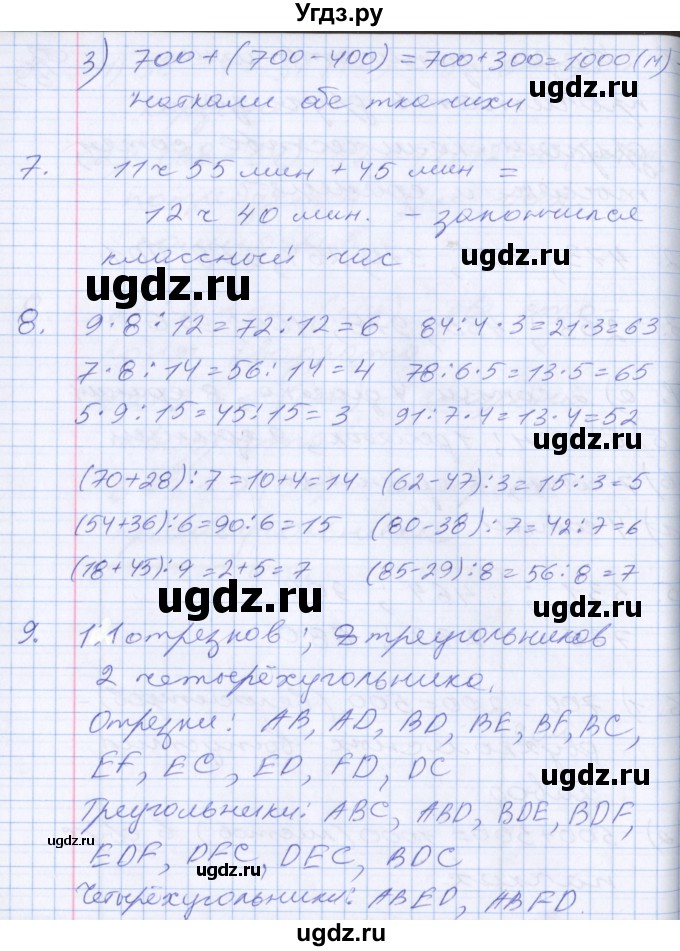 Угдз.ру
3) 700+(700-400)=700+300=1000(м)-
наткали обе ткачихи
ugdz.ru
7. 11 ч 55 мин + 45 мин =
12 ч 40 мин. - закончился
классный час
ugdz.ru ugdz.ru
8. 9·8:12=72:12=6 84:4·3=21·3=63
7·8:14=56:14=4 78:6·5=13·5=65
5·9:15=45:15=3 91:7·4=13·4=52
ugdz.ru
(70+28):7=10+4=14 (62-47):3=15:3=5
(54+36):6=90:6=15 (80-38):7=42:7=6
(18+45):9=2+5=7 (85-29):8=56:8=7
ugdz.ru ugdz.ru
9. 11 отрезков; 8 треугольников
2 четырёхугольника.
Отрезки: AB, AD, BD, BE, BF, BC,
EF, EC, ED, FD, DC
ugdz.ru
Треугольники: ABC, ABD, BDE, BDF,
ugdz.ru
EDF, DFC, DEC, BDC
ugdz.ru
Четырёхугольники: ABED, ABFD.
ugdz.ru